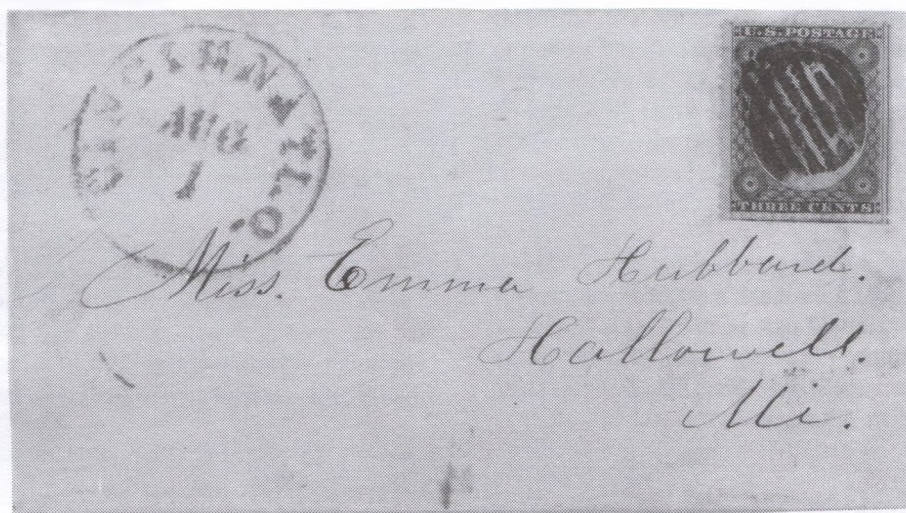 CINCINNATI. O.
AUG
1
U.S. POSTAGE
THREE CENTS
Miss. Emma Hubbard.
Hallowell.
Me.